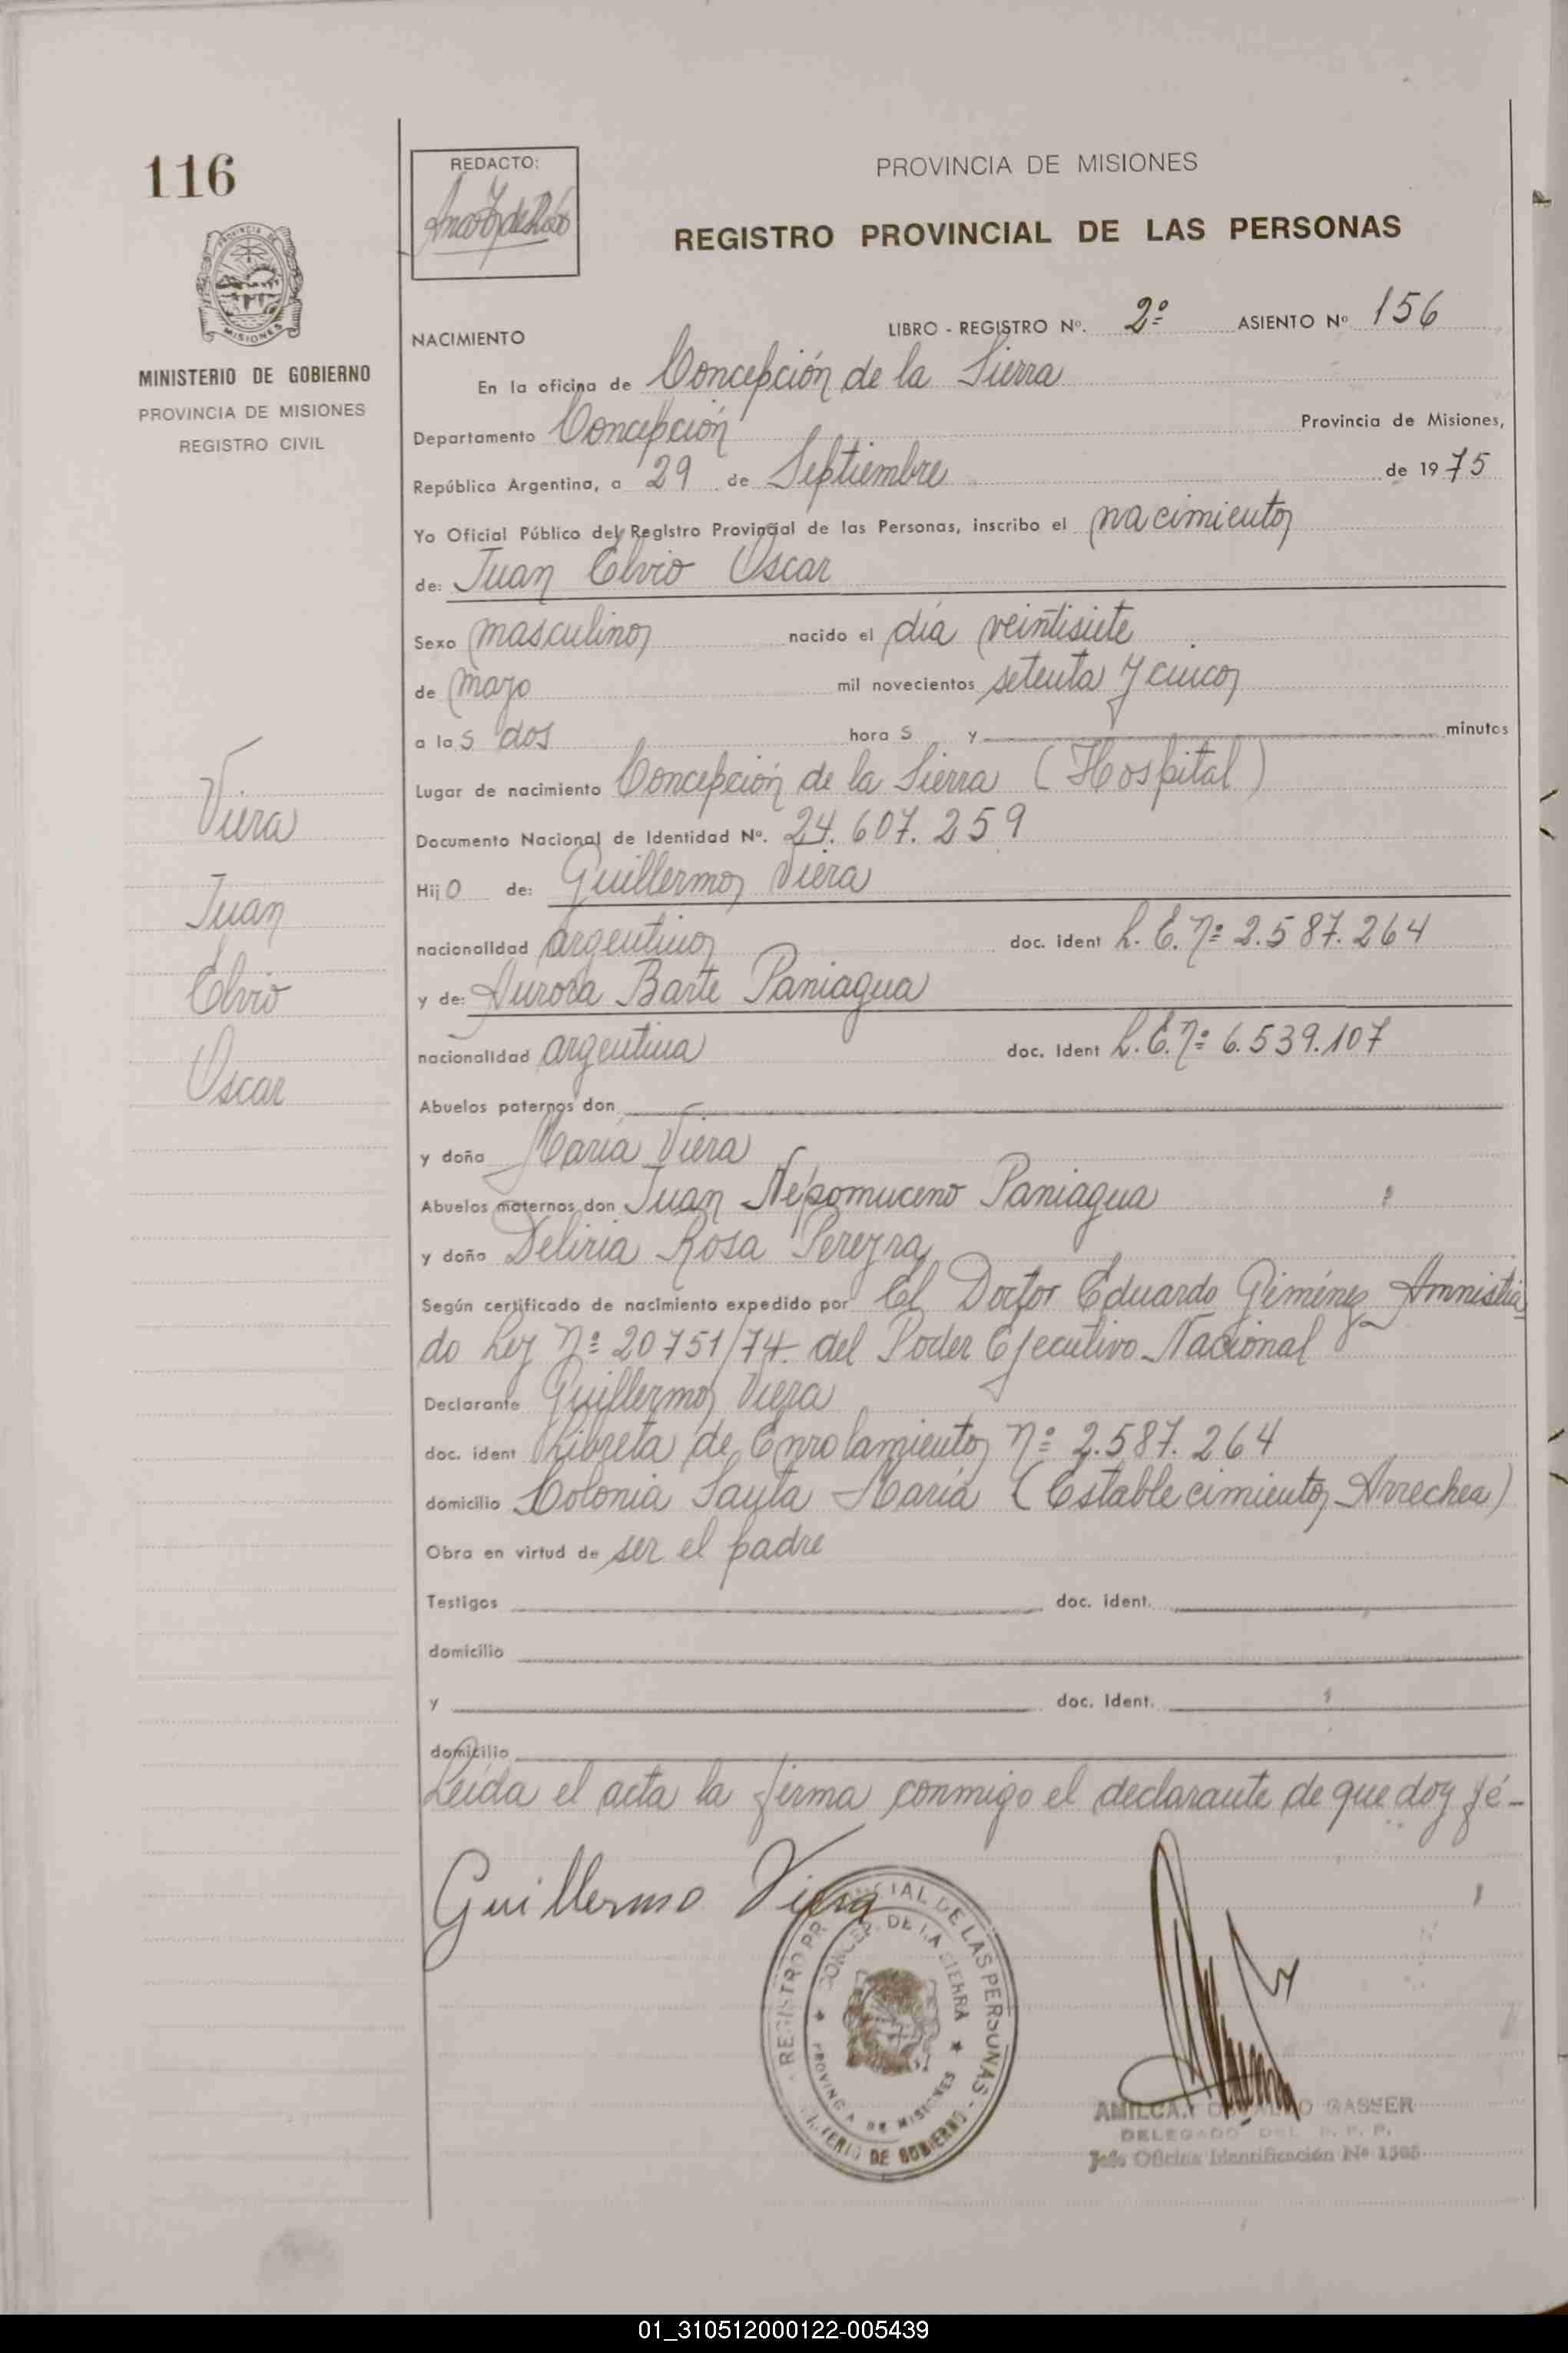 116
MINISTERIO DE GOBIERNO
PROVINCIA DE MISIONES
REGISTRO CIVIL
Viera
Juan
Elvio
Oscar
REDACTO:
PROVINCIA DE MISIONES
REGISTRO PROVINCIAL DE LAS PERSONAS
NACIMIENTO LIBRO - REGISTRO Nº. 2º ASIENTO Nº 156
En la oficina de Concepción de la Sierra
Departamento Concepción Provincia de Misiones,
República Argentina, a 29 de Septiembre de 1975
Yo Oficial Público del Registro Provincial de las Personas, inscribo el nacimiento
de: Juan Elvio Oscar
Sexo masculino nacido el día veintisiete
de mayo mil novecientos setenta y cinco
a las dos horas y minutos
Lugar de nacimiento Concepción de la Sierra (Hospital)
Documento Nacional de Identidad Nº. 24.607.259
Hijo de: Guillermo Viera
nacionalidad argentino doc. ident L.E. Nº 2.587.264
y de: Aurora Barte Paniagua
nacionalidad argentina doc. Ident L.E. Nº 6.539.107
Abuelos paternos don
y doña María Viera
Abuelos maternos don Juan Nepomuceno Paniagua
y doña Deliria Rosa Pereyra
Según certificado de nacimiento expedido por El Doctor Eduardo Giménez Amnistia
do Ley Nº 20751/74. del Poder Ejecutivo Nacional
Declarante Guillermo Viera
doc. ident Libreta de Enrolamiento Nº 2.587.264
domicilio Colonia Santa María (Establecimiento Arrechea)
Obra en virtud de ser el padre
Testigos doc. ident.
domicilio
y doc. Ident.
domicilio
Leída el acta la firma conmigo el declarante de que doy fé-
Guillermo Viera
REGISTRO PROVINCIAL DE LAS PERSONAS
CONCEP. DE LA SIERRA
PROVINCIA DE MISIONES
MINISTERIO DE GOBIERNO
GASSER
DELEGADO DEL R. P. P.
Jefe Oficina Identificación Nº
01_310512000122-005439